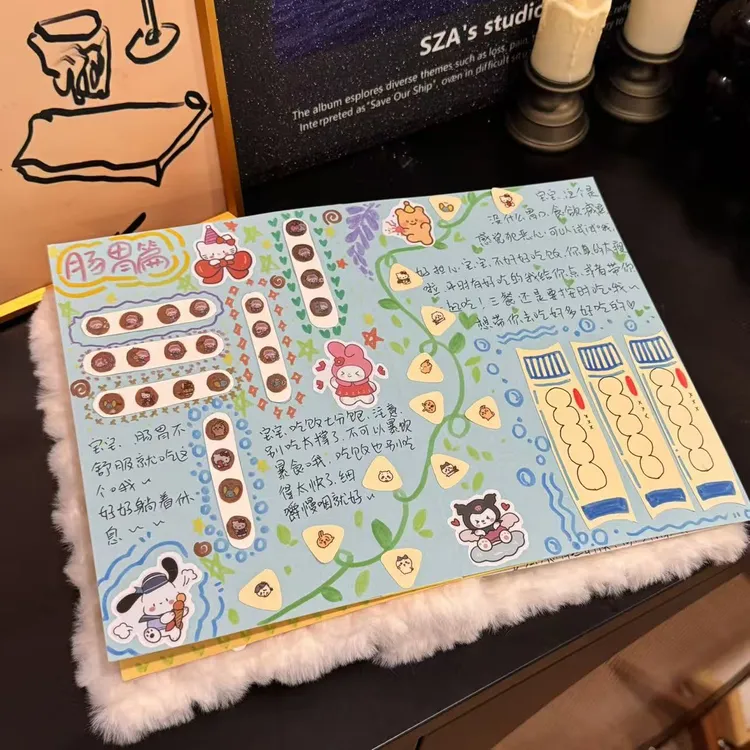 SZA's studio
The album esplores diverse themes such as loss, pain,
Interpreted as "Save Our Ship", oven in difficult
肠胃篇
宝宝, 这个是
没什么胃口, 食欲
感觉犯恶心可以试试哦
好担心宝宝, 不好好吃饭, 你真的太瘦
啦 平时有好吃的我给你点 或者带你
一起吃! 三餐还是要按时吃哦~
想带你去吃好多好吃的
宝宝, 肠胃不
舒服就吃这
个哦~
好好躺着休
息~~
宝宝, 吃饭七分饱, 注意
别吃太撑了, 不可以暴饮
暴食哦, 吃饭也别吃
得太快了, 细
嚼慢咽就好~